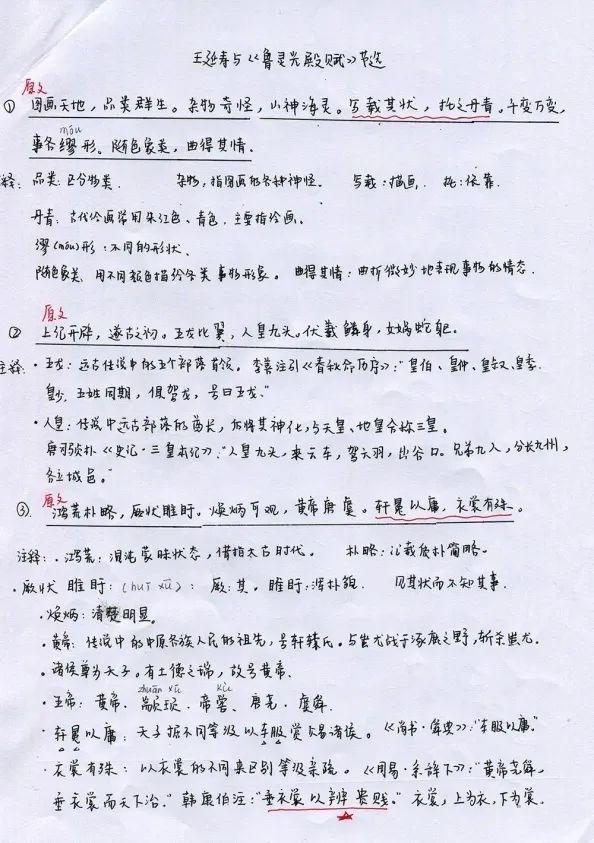 王延寿与《鲁灵光殿赋》节选
原文
① 图画天地，品类群生。杂物奇怪，山神海灵。写载其状，托之丹青。千变万变，
móu
事各缪形。随色象类，曲得其情。
注释: 品类: 区分物类. 杂物: 指图画的各种神怪. 写载: 描画. 托: 依靠.
丹青: 古代绘画常用朱红色、青色. 主要指绘画.
缪(móu)形: 不同的形状.
随色象类. 用不同颜色描绘各类事物形象. 曲得其情: 曲折微妙地表现事物的情态.
原文
② 上纪开辟，遂古之初。五龙比翼，人皇九头。伏羲鳞身，女娲蛇躯.
注释: ·五龙: 远古传说中的五个部落首领. 李善注引《春秋命历序》:"皇伯、皇仲、皇叔、皇季.
皇少. 五姓同期，俱驾龙，号曰五龙."
·人皇: 传说中远古部落的酋长，后将其神化，与天皇、地皇合称三皇。
唐司马贞补《史记·三皇本纪》:"人皇九头，乘云车，驾六羽，出谷口。兄弟九人，分长九州，
各立城邑."
原文
③. 鸿荒朴略，厥状睢盱. 焕炳可观，黄帝唐虞。轩冕以庸，衣裳有殊。
注释: ·鸿荒: 混沌蒙昧状态，借指太古时代。 朴略: 记载质朴简略。
·厥状 睢盱: (huī xū): 厥: 其. 睢盱: 浑朴貌. 见其状而不知其事.
·焕炳: 清楚明显。
·黄帝: 传说中的中原各族人民的祖先，号轩辕氏。与蚩尤战于涿鹿之野，斩杀蚩尤.
·诸侯尊为天子. 有土德之瑞，故号黄帝.
zhuān xū kù
·五帝: 黄帝. 颛顼. 帝喾. 唐尧. 虞舜.
·轩冕以庸: 天子据不同等级以车服赏赐诸侯。《尚书·舜典》:"车服以庸."
·衣裳有殊: 以衣裳的不同来区别等级亲疏。《周易·系辞下》:"黄帝尧舜.
垂衣裳而天下治." 韩康伯注:"垂衣裳以辨贵贱." 衣裳，上为衣，下为裳.